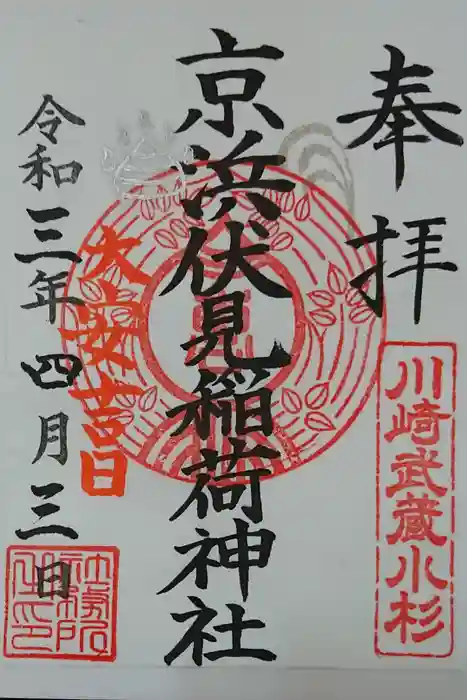 奉拝
川崎武蔵小杉
京浜伏見稲荷神社
大安吉日
令和三年四月三日
社務所之印